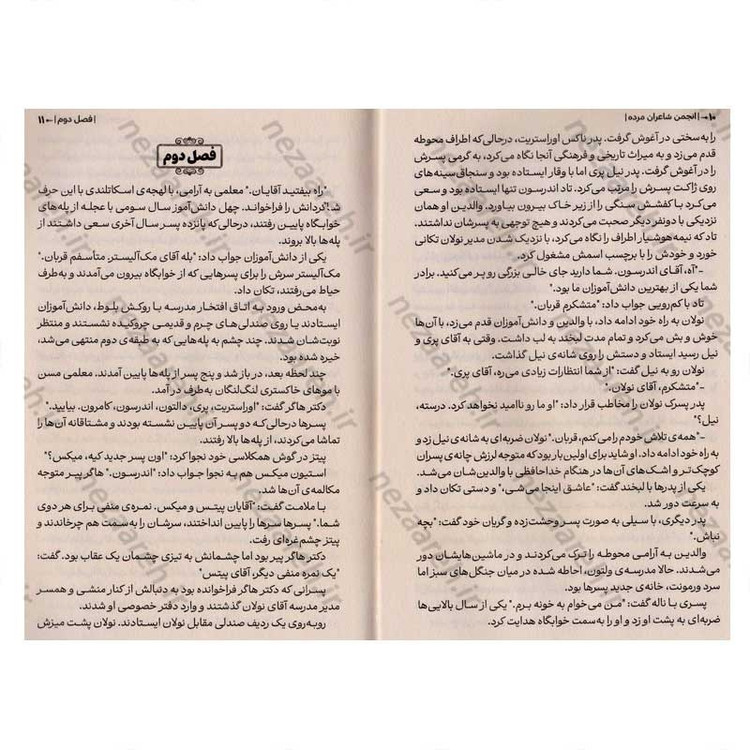 ۱۰ → | انجمن شاعران مرده |
را به‌سختی در آغوش گرفت. پدر ناکس اوراستریت، درحالی‌که اطراف محوطه
قدم می‌زد و به میراث تاریخی و فرهنگی آنجا نگاه می‌کرد، به گرمی پسرش
را در آغوش گرفت. پدر نیل پری اما با وقار ایستاده بود و سنجاق‌سینه‌های
روی ژاکت پسرش را مرتب می‌کرد. تاد اندرسون تنها ایستاده بود و سعی
می‌کرد با کفشش سنگی را از زیر خاک بیرون بیاورد. والدین او همان
نزدیکی با دونفر دیگر صحبت می‌کردند و هیچ توجهی به پسرشان نداشتند.
تاد که نیمه‌هوشیار اطراف را نگاه می‌کرد، با نزدیک شدن مدیر نولان تکانی
خورد و خودش را با برچسب اسمش مشغول کرد.
-"آه، آقای اندرسون. شما دارید جای خالی بزرگی رو پر می‌کنید. برادر
شما یکی از بهترین دانش‌آموزان ما بود."
تاد با کم‌رویی جواب داد: "متشکرم قربان."
نولان به راه خود ادامه داد، با والدین و دانش‌آموزان قدم می‌زد، با آن‌ها
خوش و بش می‌کرد و تمام مدت لبخند به لب داشت. وقتی به آقای پری و
نیل رسید ایستاد و دستش را روی شانه‌ی نیل گذاشت.
نولان رو به نیل گفت: "از شما انتظارات زیادی می‌ره، آقای پری."
-"متشکرم، آقای نولان."
پدر پسرک نولان را مخاطب قرار داد: "او ما رو ناامید نخواهد کرد. درسته،
نیل؟"
-"همه‌ی تلاش خودم را می‌کنم، قربان." نولان ضربه‌ای به شانه‌ی نیل زد و
به راه خود ادامه داد. او شاید برای اولین بار بود که متوجه لرزش چانه‌ی پسران
کوچک‌تر و اشک‌های آن‌ها در هنگام خداحافظی با والدین‌شان می‌شد.
یکی از پدرها با لبخند گفت: "عاشق اینجا می‌شی." و دستی تکان داد و
به سرعت دور شد.
پدر دیگری، با سیلی به صورت پسر وحشت‌زده و گریان خود گفت: "بچه
نباش."
والدین به آرامی محوطه را ترک می‌کردند و در ماشین‌هایشان دور
می‌شدند. حالا مدرسه‌ی ولتون، احاطه شده در میان جنگل‌های سبز اما
سرد ورمونت، خانه‌ی جدید پسرها بود.
پسری با ناله گفت: "من می‌خوام به خونه برم." یکی از سال بالایی‌ها
ضربه‌ای به پشت او زد و او را به‌سمت خوابگاه هدایت کرد.
| فصل دوم | ← ۱۱
فصل دوم
"راه بیفتید آقایان." معلمی به آرامی، با لهجه‌ی اسکاتلندی با این حرف
شاگردانش را فراخواند. چهل دانش‌آموز سال سومی با عجله از پله‌های
خوابگاه پایین رفتند، درحالی‌که پانزده پسر سال آخری سعی داشتند از
پله‌ها بالا بروند.
یکی از دانش‌آموزان جواب داد: "بله آقای مک‌آلیستر. متأسفم قربان."
مک‌آلیستر سرش را برای پسرهایی که از خوابگاه بیرون می‌آمدند و به‌طرف
حیاط می‌رفتند، تکان داد.
به‌محض ورود به اتاق افتخار مدرسه با روکش بلوط، دانش‌آموزان
ایستادند یا روی صندلی‌های چرم و قدیمی چروکیده نشستند و منتظر
نوبت‌شان شدند. چند چشم به پله‌هایی که به طبقه‌ی دوم منتهی می‌شد،
خیره شده بود.
چند لحظه بعد، در باز شد و پنج پسر از پله‌ها پایین آمدند. معلمی مسن
با موهای خاکستری لنگ‌لنگان به‌طرف در آمد.
دکتر هاگر گفت: "اوراستریت، پری، دالتون، اندرسون، کامرون. بیایید."
پسرها درحالی‌که دو پسر آن پایین نشسته بودند و مشتاقانه آن‌ها را
تماشا می‌کردند، از پله‌ها بالا رفتند.
پیتز در گوش همکلاسی خود نجوا کرد: "اون پسر جدید کیه، میکس؟"
استیون میکس هم به نجوا جواب داد: "اندرسون." هاگر پیر متوجه
مکالمه‌ی آن‌ها شد.
با ملامت گفت: "آقایان پیتس و میکس. نمره‌ی منفی برای هر دوی
شما." پسرها سرها را پایین انداختند، سرشان را به سمت هم چرخاندند و
پیتز چشم‌غره‌ای رفت.
دکتر هاگر پیر بود اما چشمانش به تیزی چشمان یک عقاب بود. گفت:
"یک نمره منفی دیگر، آقای پیتس"
پسرانی که دکتر هاگر فراخوانده بود به دنبالش از کنار منشی و همسر
مدیر مدرسه آقای نولان گذشتند و وارد دفتر خصوصی او شدند.
روبه‌روی یک ردیف صندلی مقابل نولان ایستادند. نولان پشت میزش
nezaareh.ir